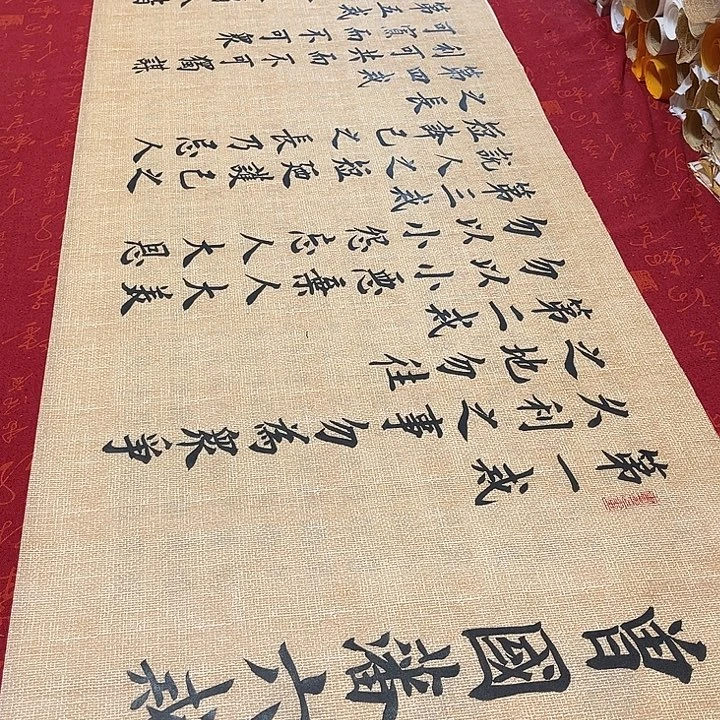 曾國藩六戒
第一戒
久利之事勿為眾爭
之地勿往
第二戒
勿以小惡棄人大美
勿以小怨忘人大恩
第三戒
說人之短廼護己之
短夸己之長乃忌人
之長
第四戒
利可共而不可獨謀
可寡而不可眾
第五戒